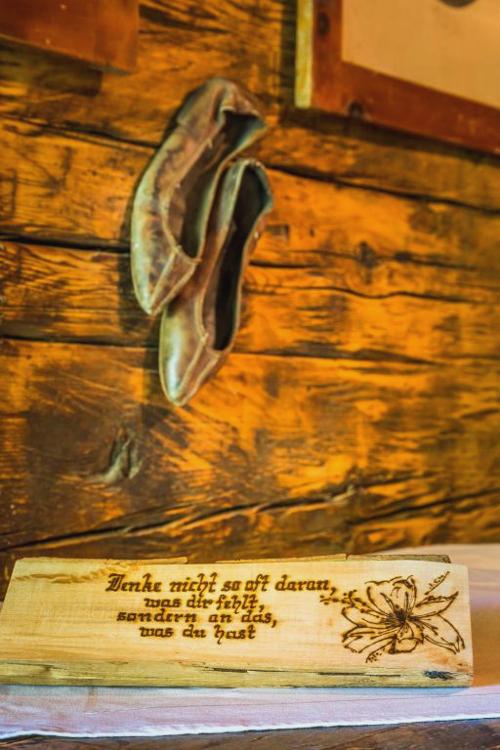 Denke nicht so oft daran,
was dir fehlt,
sondern an das,
was du hast